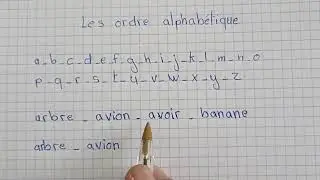 Les ordre alphabétique
a_b_c_d_e_f_g_h_i_j_k_l_m_n_o
p_q_r_s_t_u_v_w_x_y_z
arbre _ avion _ avoir _ banane
arbre _ avion